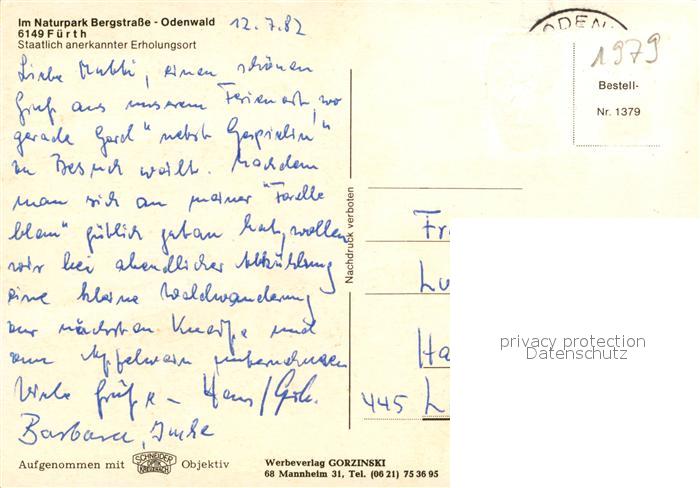 Im Naturpark Bergstraße - Odenwald
6149 Fürth
Staatlich anerkannter Erholungsort
12.7.82
Liebe Mutti, einen schönen
Gruß aus unserem Ferienort, wo
gerade Gerd "nebst Gespielin"
zu Besuch weilt. Nachdem
man sich an meiner "Forelle
blau" gütlich getan hat, wollen
wir bei abendlicher Abkühlung
eine kleine Waldwanderung
zur nächsten Kneipe und
zum Apfelwein unternehmen
Viele Grüße - Hans /
Barbara, Imke
Aufgenommen mit SCHNEIDER OPTIK KREUZNACH Objektiv
Nachdruck verboten
Werbeverlag GORZINSKI
68 Mannheim 31, Tel. (06 21) 75 36 95
ODEN
1979
Bestell-
Nr. 1379
Fr
Lu
Ha
445 L
privacy protection
Datenschutz